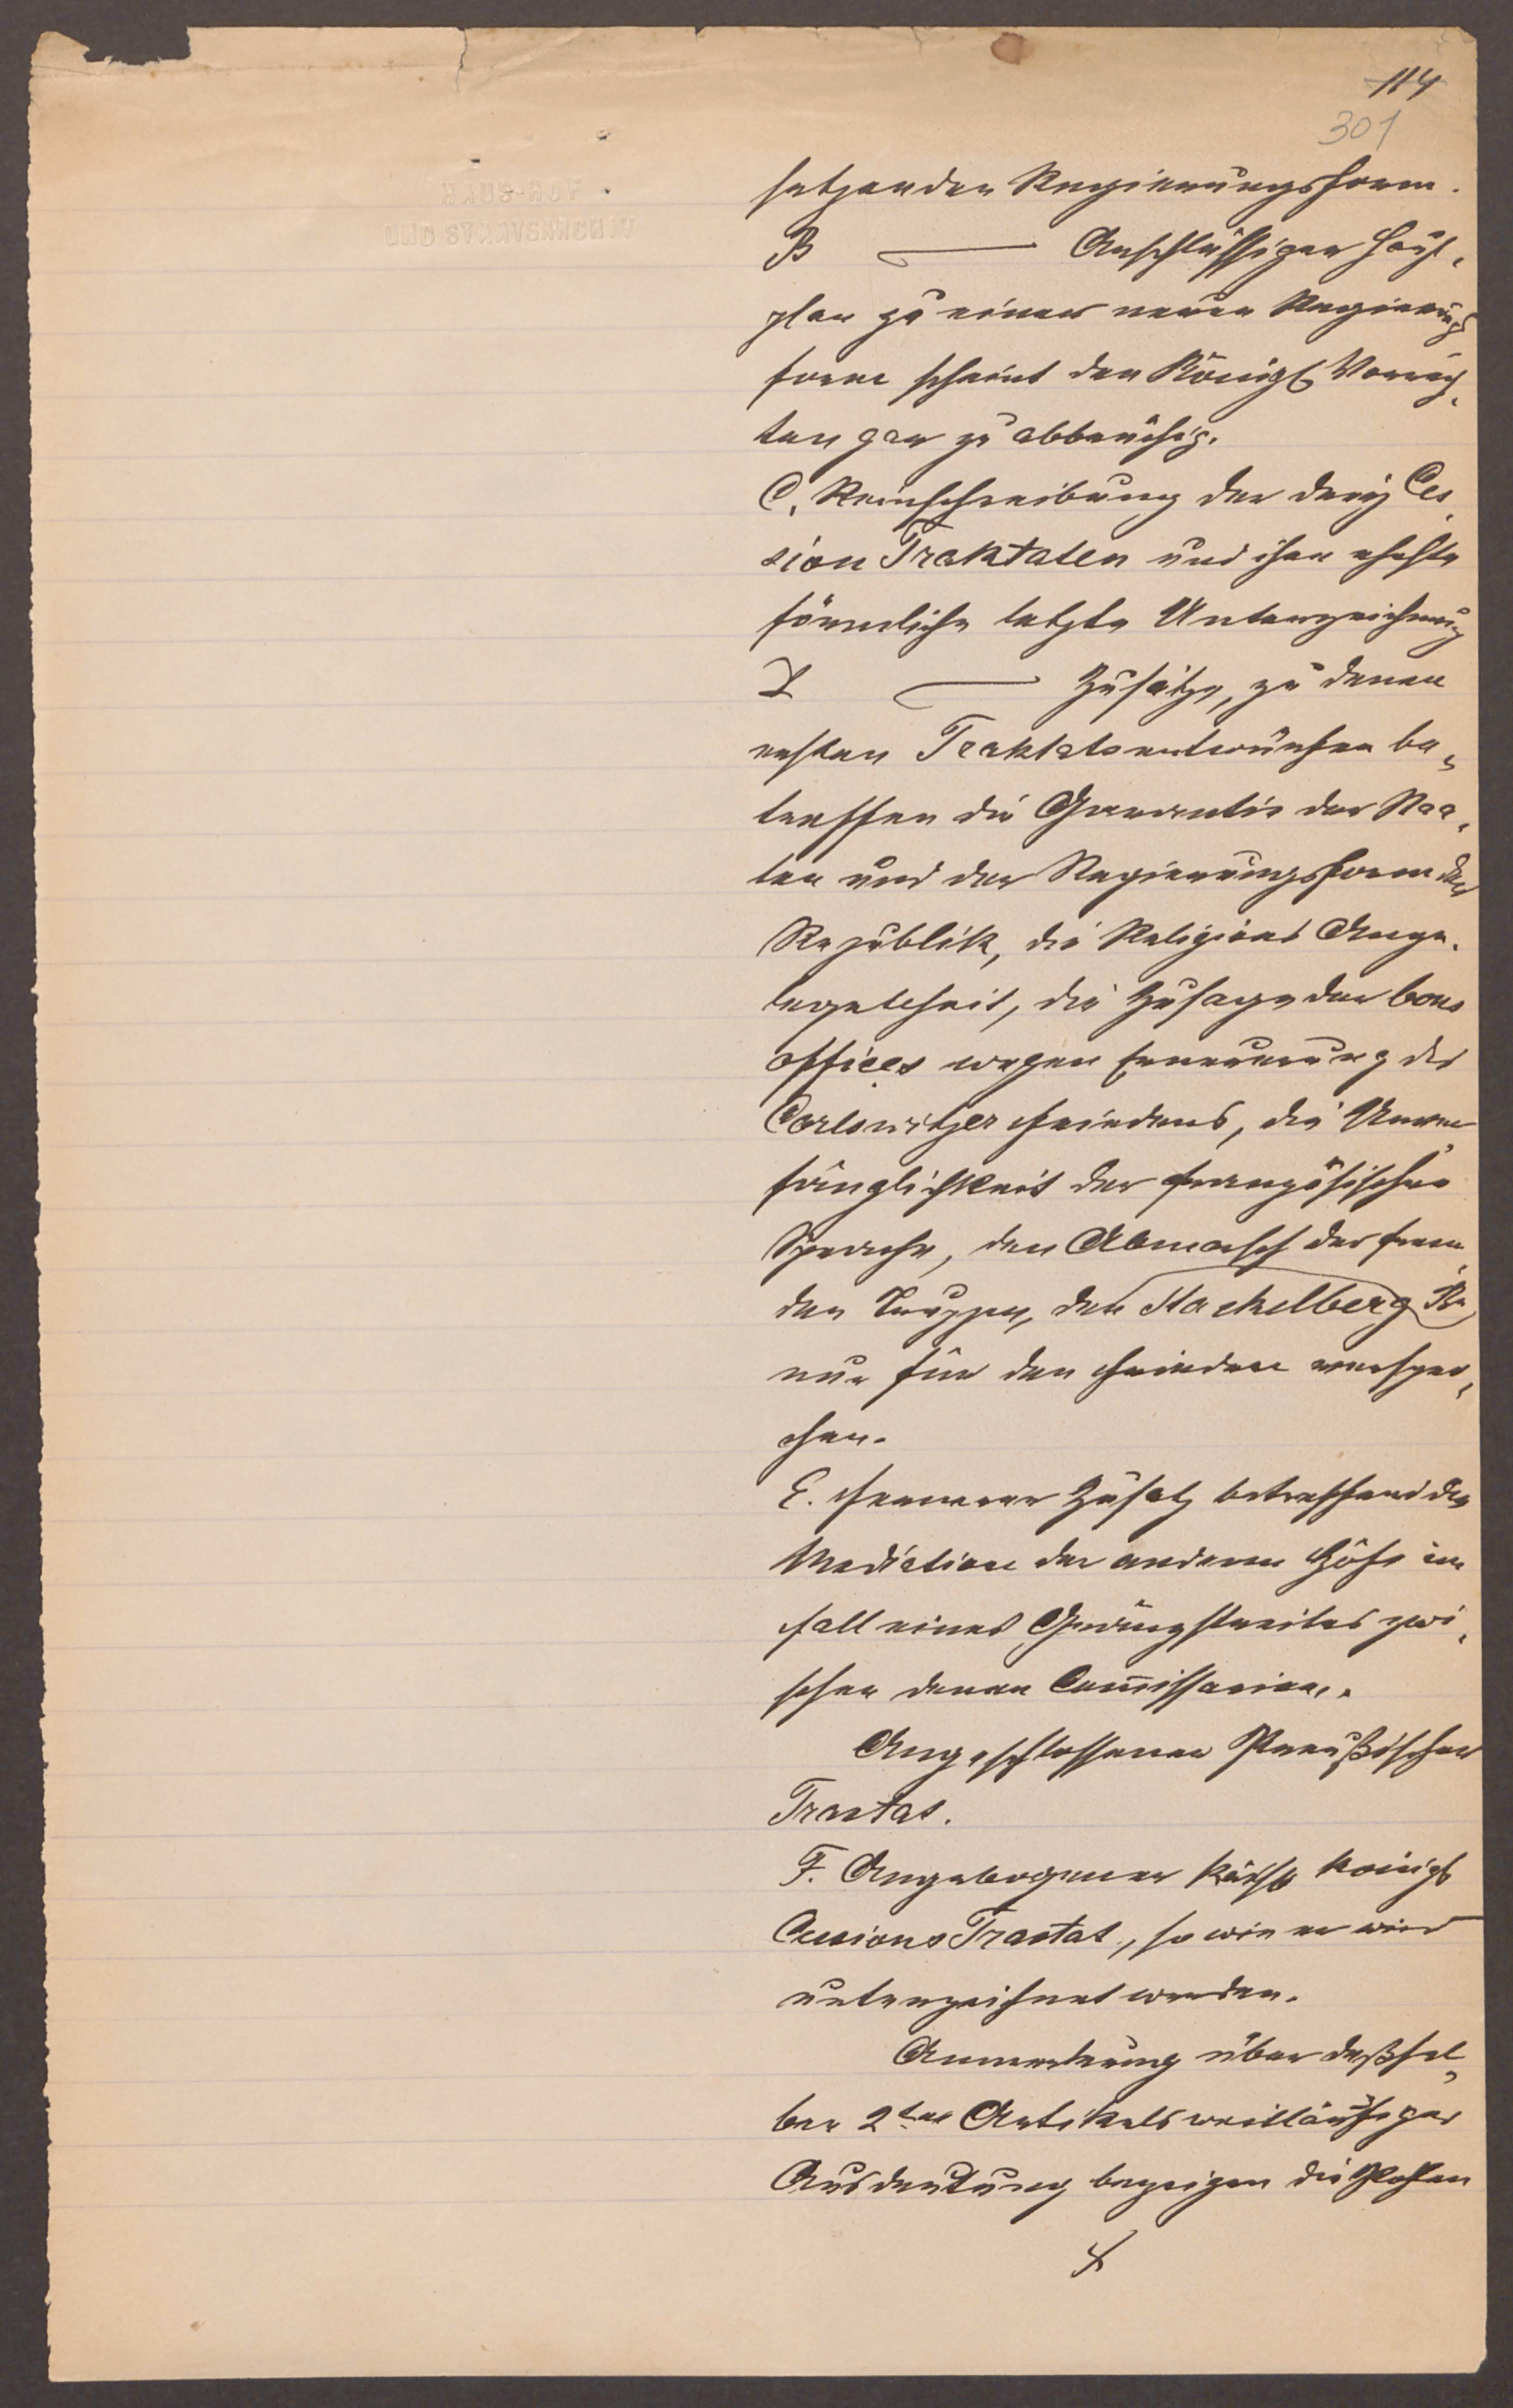 114
301
HAUS-HOF
UND STAATSARCHIV
setzenden Regierungsform.
B Anschlüssiger
plan zu einer neuen Regierungs
form scheint den Königl Vorrech,
ten gar zu abbrüchig.
C. Reinschreibung der drey Ces
sion Traktaten und ihre ehste
förmliche letzte Unterzeichnung
D Zusätze, zu denen
ersten Traktatsentwürfen be,
treffen die Guarantie der Staa,
ten und der Regierungsform der
Republik, die Religions Ange,
legenheit, die Zusage der bons
offices wegen Erneuerung des
Carlowitzer Friedens, die Unver
fänglichkeit der französischen
Sprache, den Abmarsch der frem
den Truppen, den Stackelberg
nur für den Frieden verspro,
chen.
E. Fernerer Zusatz betreffend die
Mediation der anderen Höfe im
Fall eines Gränzstreites zwi,
schen denen Commissarien.
Angeschlossener Preußischer
Tractat.
F. Angebogener Kaisl Königl
Cessions Tractat, so wie er wird
unterzeichnet werden.
Anmerkung über deßsel,
ben 2ten Artikels weitläufiger
Ausdeutung bezeigen die Pohlen